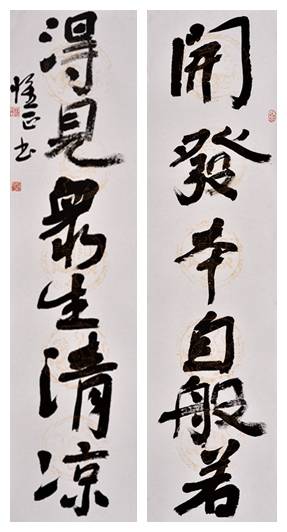 開發本自般若
得見眾生清凉
惟正书